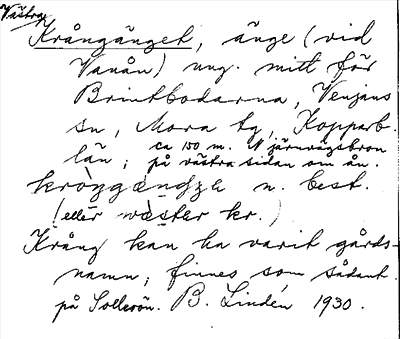 Västra
Krångänget, änge (vid
Vanån) ung. mitt för
Brintbodarna, Venjans
sn, Mora tg, Kopparb.
län; ca 150 m. N järnvägsbron
på västra sidan om ån.
n. best.
(eller väster kr.)
Krång kan ha varit gårds-
namn; finnes som sådant
på Sollerön. B. Lindén 1930.